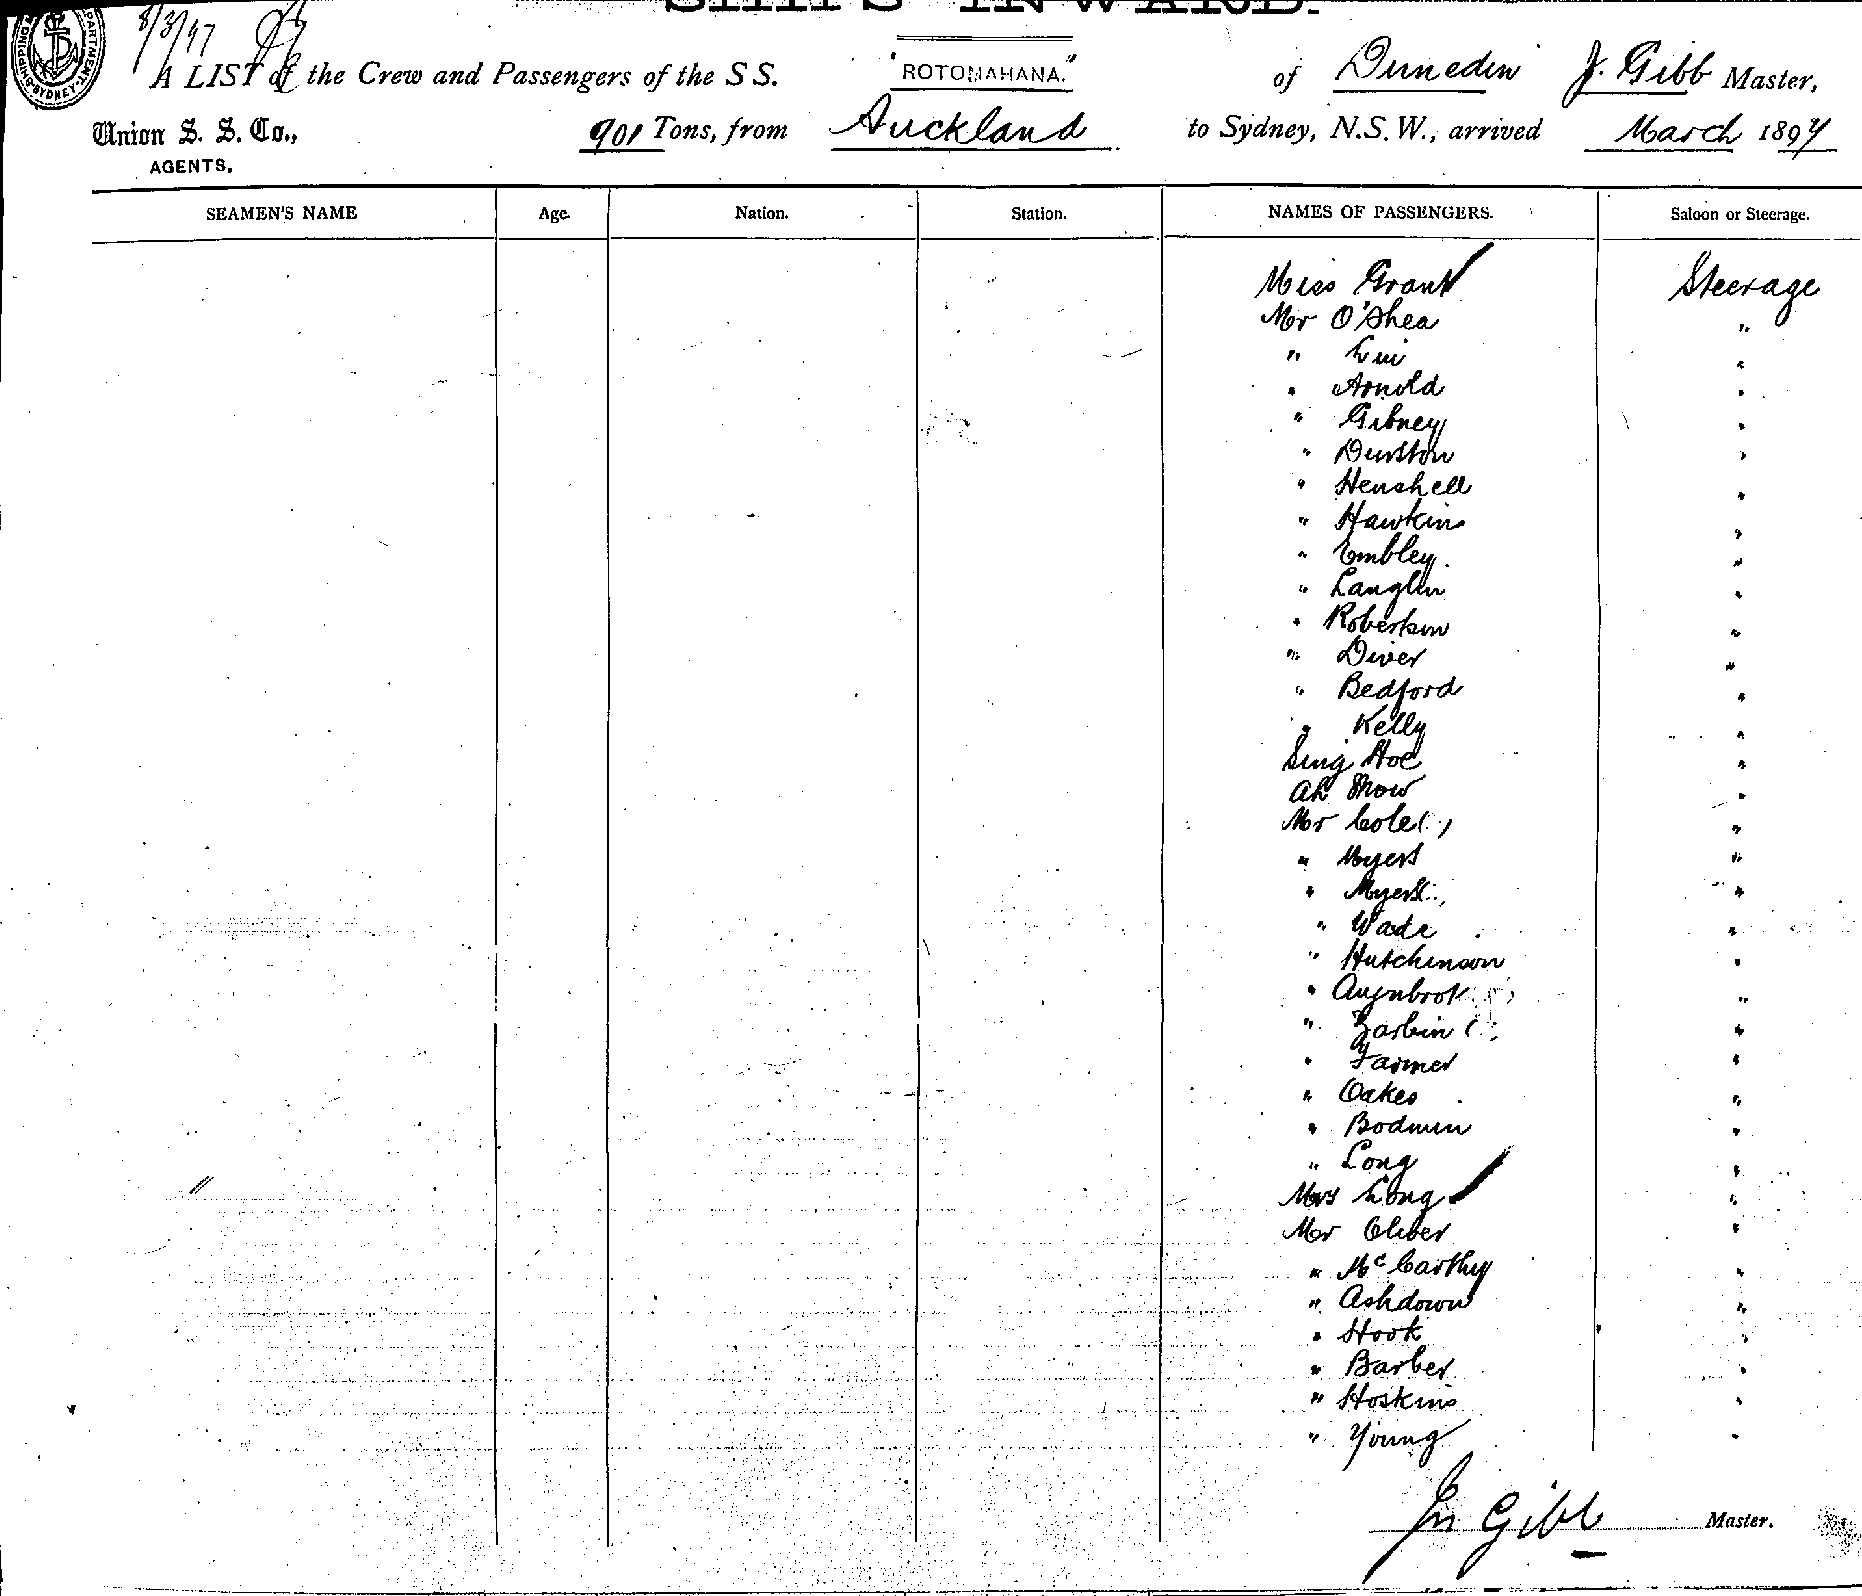 SHIPS INWARD.
8/3/97
A LIST of the Crew and Passengers of the S S. "ROTOMAHANA." of Dunedin J. Gibb Master,
Union S. S. Co., 901 Tons, from Auckland to Sydney, N.S.W., arrived March 1897
AGENTS,
SEAMEN'S NAME Age. Nation. Station. NAMES OF PASSENGERS. Saloon or Steerage.
Miss Grant Steerage
Mr O'Shea "
" "
" Arnold "
" Gibney "
" Durston "
" Henshell "
" Hawkins "
" Embley. "
" Langlin "
" Robertson "
" Diver "
" Bedford "
" Kelly "
Sing Hoe "
Ah "
Mr Cole "
" Myers "
" Myers "
" Wade "
" Hutchinson "
" "
" Zarbin "
" Farmer "
" Oakes "
" Bodmin "
" Long "
Mrs Long "
Mr Oliver "
" McCarthy "
" Ashdown "
" Hook "
" Barber "
" Hoskins "
" Young "
Gibb Master.